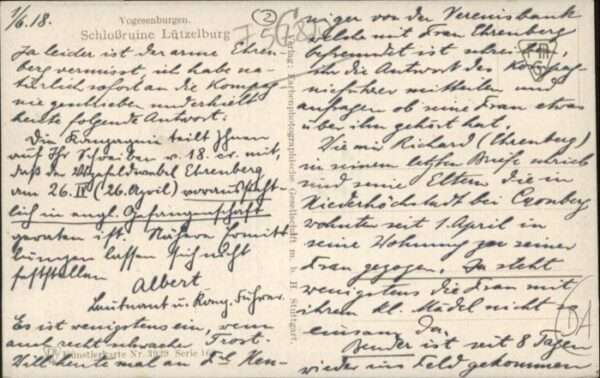 1/6.18.
Vogesenburgen.
Schloßruine Lützelburg
Ja leider ist der arme Ehren-
berg vermisst, ich habe na-
türlich sofort an die Kompag-
nie geschrieben und erhielt
heute folgende Antwort:
Die Kompagnie teilt Ihnen
auf Ihr Schreiben v. 18. cr. mit,
daß der Vizefeldwebel Ehrenberg
am 26.IV (26. April) voraussicht-
lich in engl. Gefangenschaft
geraten ist. Nähere Ermitt-
lungen lassen sich nicht
feststellen
Albert
Leutnant u. Komp. Führer.
Es ist wenigstens ein, wenn
auch recht schwacher Trost.
Künstlerkarte Nr. 3929 Serie
Will heute mal an Frl. Hen-
Verlag: Farbenphotographische Gesellschaft m. b. H. Stuttgart.
2
niger von der Vereinsbank
welche mit Frau Ehrenberg
befreundet ist schreiben,
ihr die Antwort des Kompag-
nieführer mitteilen und
anfragen ob seine Frau etwas
über ihn gehört hat.
Wie mir Richard (Ehrenberg)
in seinem letzten Briefe schrieb
sind seine Eltern die in
Niederhöchstadt bei Cronberg
wohnten seit 1. April in
seine Wohnung zu seiner
Frau gezogen. So steht
wenigstens die Frau mit
ihrem kl. Mädel nicht so
einsam da.
Bender ist seit 8 Tagen
wieder ins Feld gekommen
DA